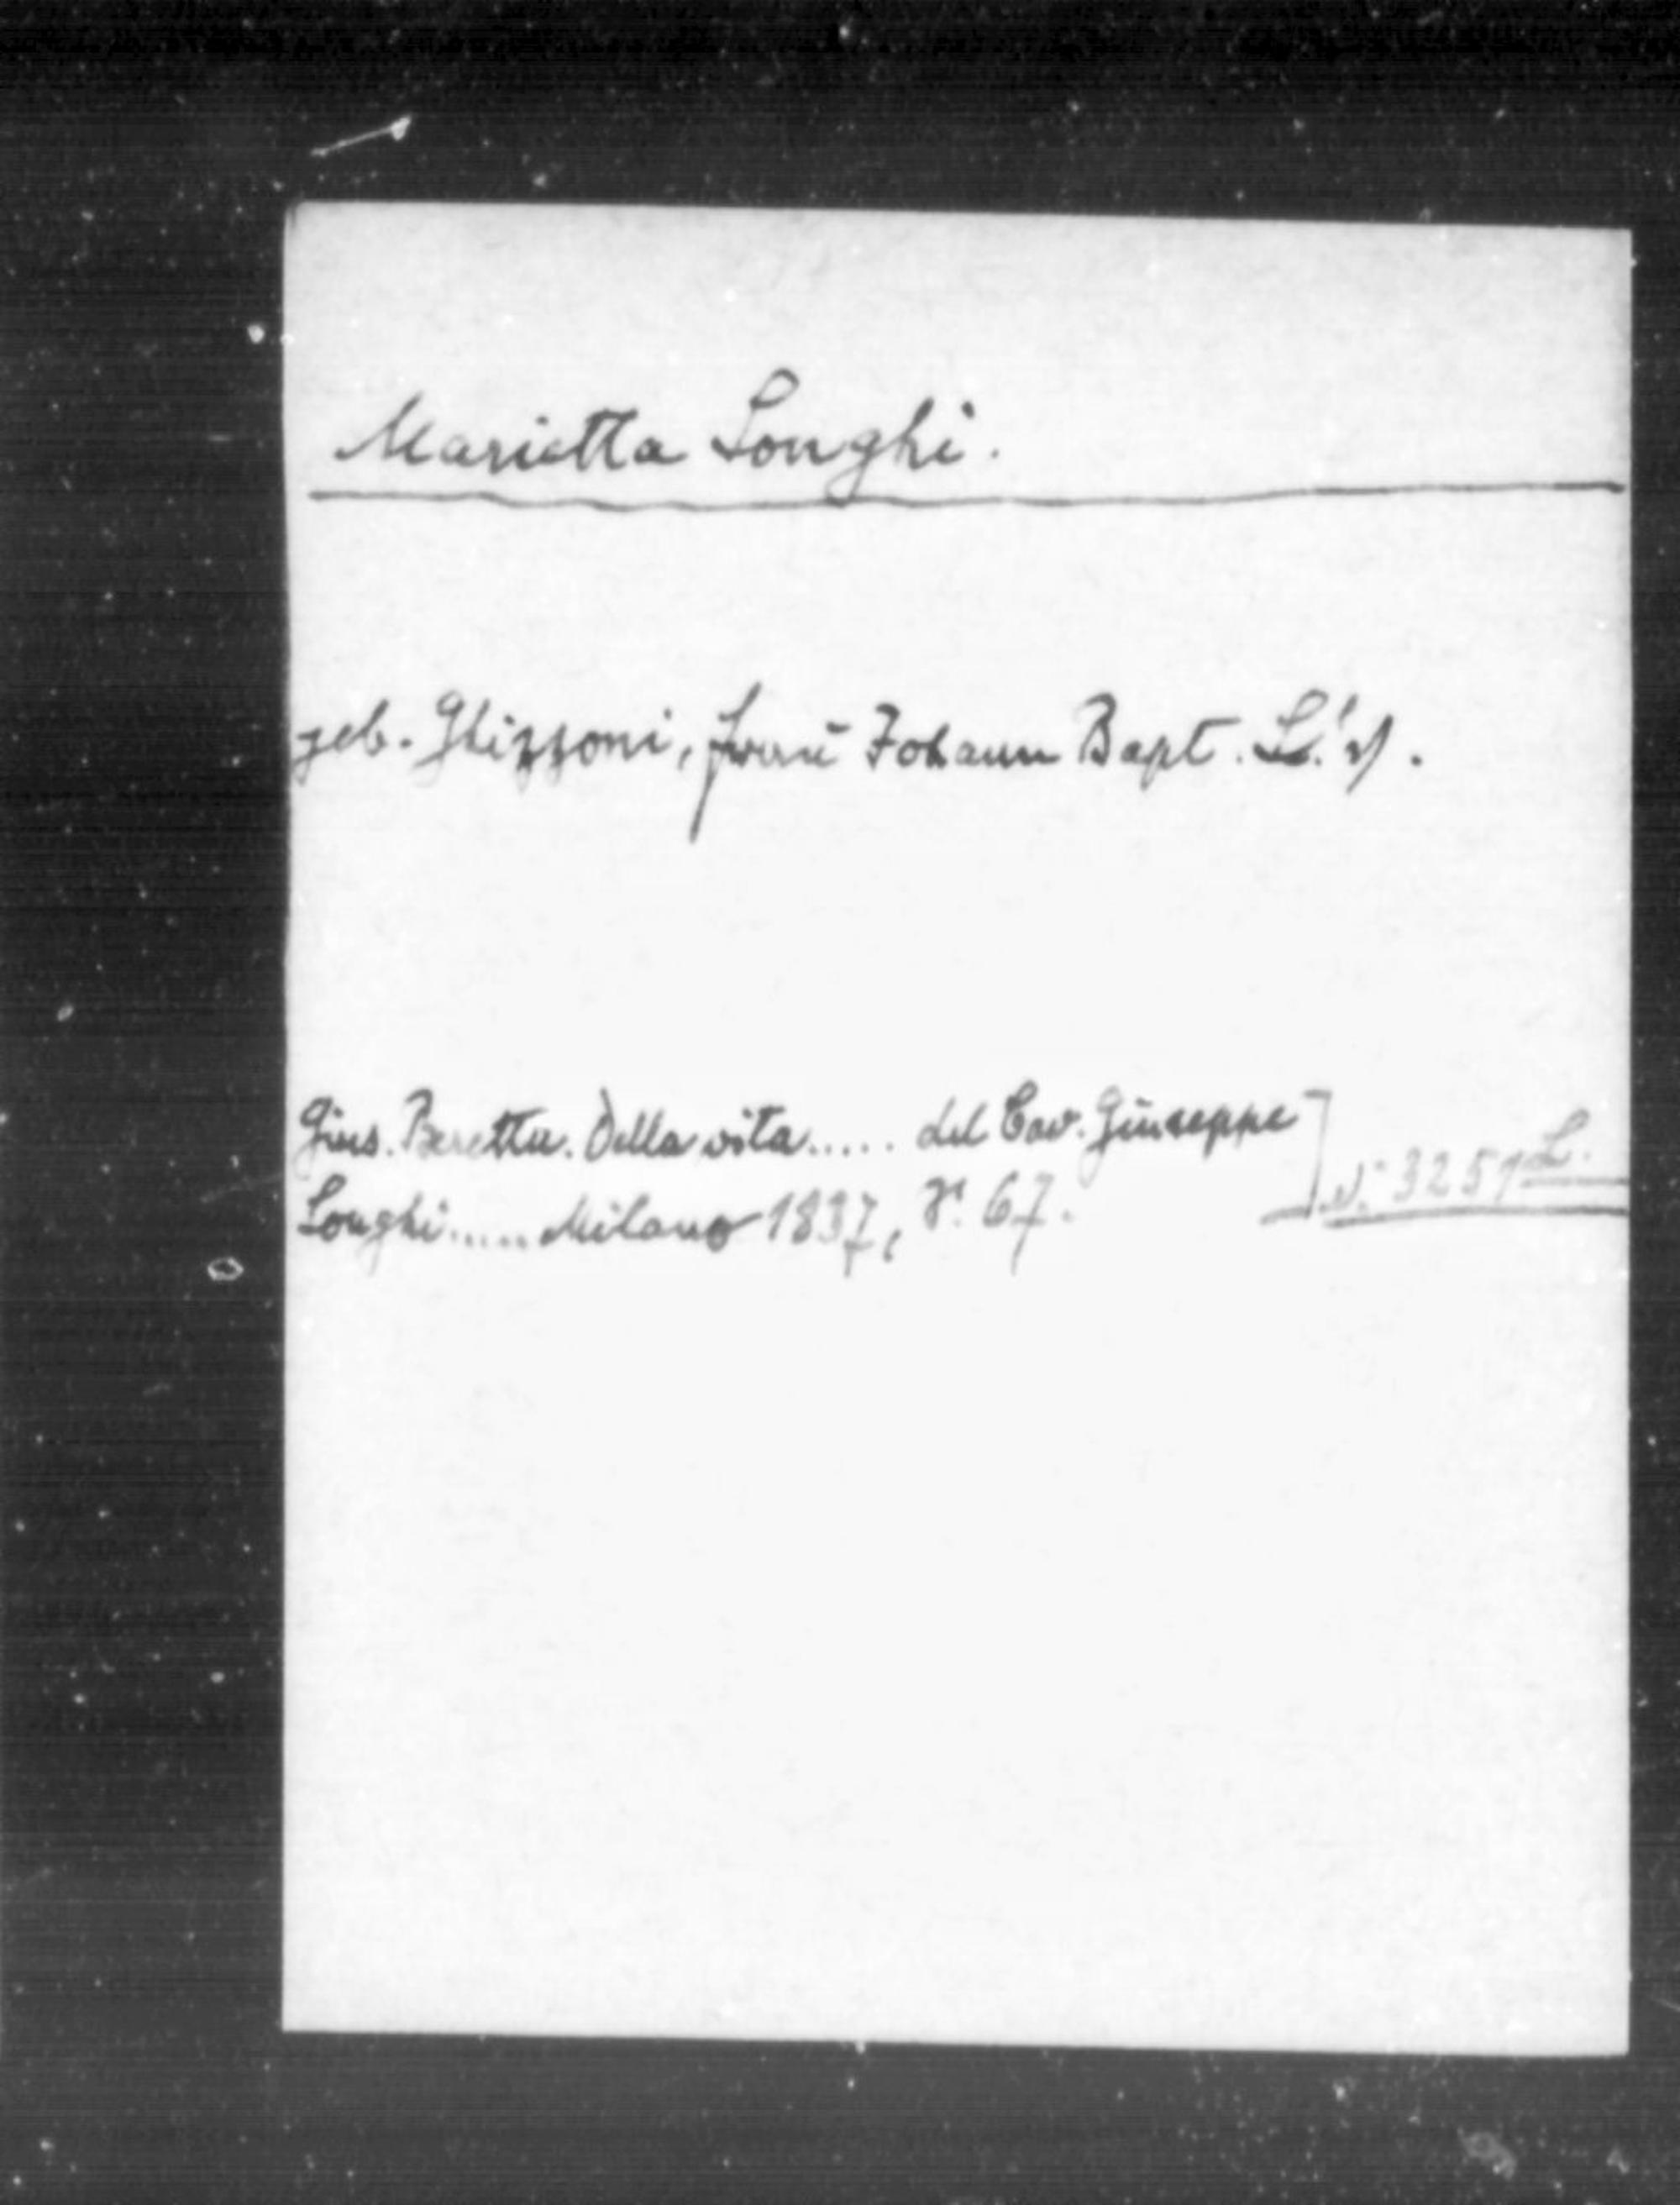 Marietta Longhi.
geb. Ghizzoni, Frau Johann Bapt. L.'s.
Gius. Beretta. Della vita..... del Cav. Giuseppe
Longhi..... Milano 1837, S. 67.
N: 3251 L.